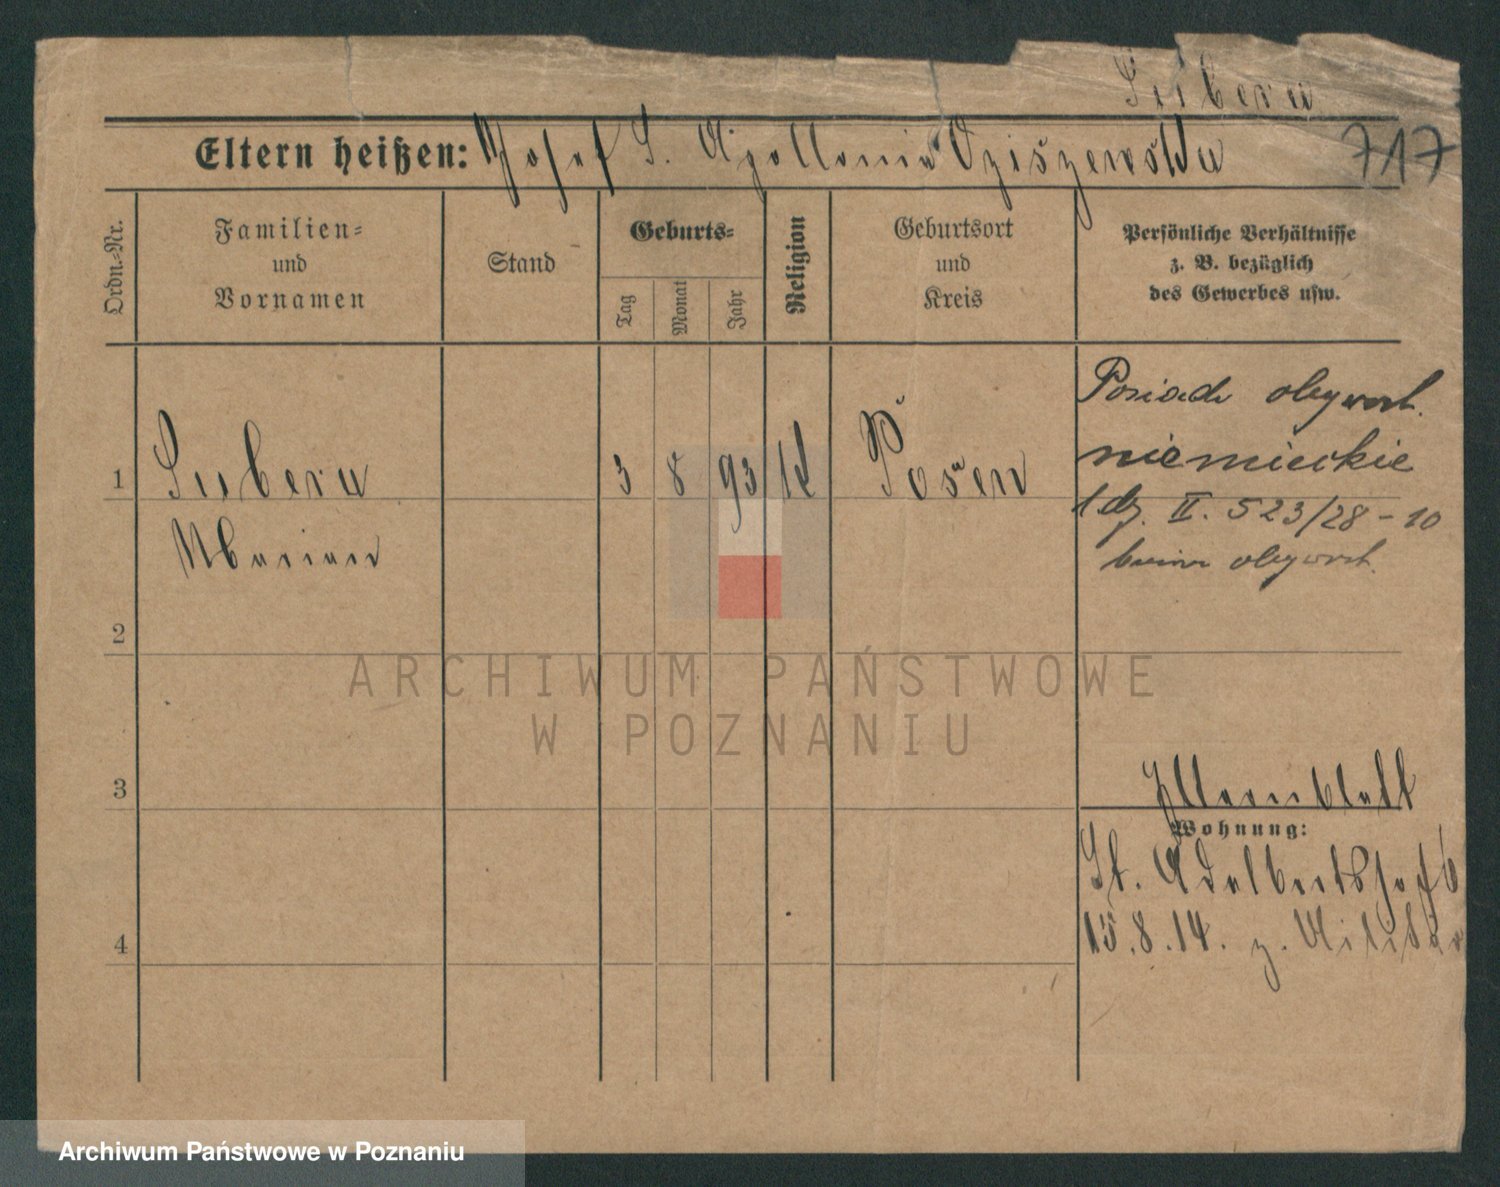 Subera
Eltern heißen: Josef S. Apollonia Dziszewska 717
Ordn.-Nr.
Familien-
und
Vornamen
Stand
Geburts-
Tag
Monat
Jahr
Religion
Geburtsort
und
Kreis
Persönliche Verhältnisse
z. B. bezüglich
des Gewerbes usw.
1 Subera 3 8 93 Posen
Marian
Posiada obywat.
niemieckie
l.dz. II. 523/28-10
obywat.
2
3
Wohnung:
St. Adalbertstr 6
15.8.14. z. Militär
4
ARCHIWUM PAŃSTWOWE
W POZNANIU
Archiwum Państwowe w Poznaniu